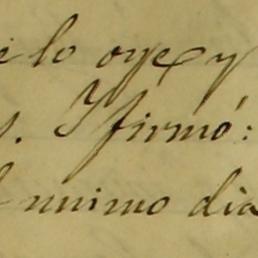 e lo oye y
s. Y firmó:
l mimo dia